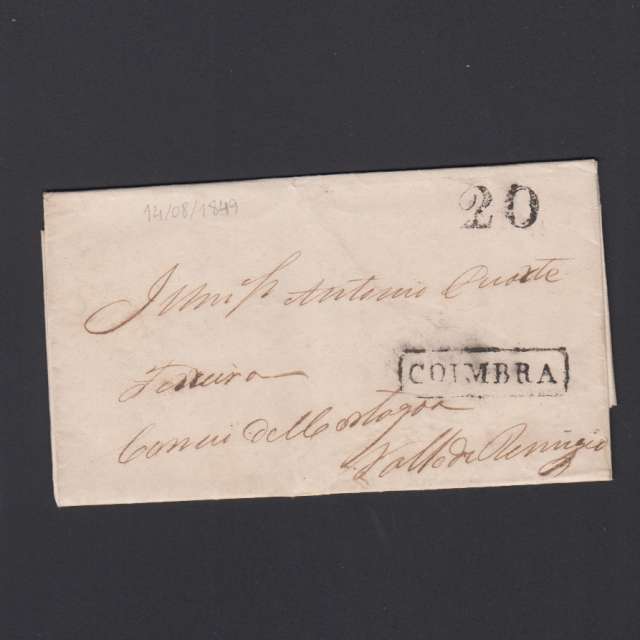 14/08/1849
20
Illmº Sr Antonio Duarte
Ferreira
COIMBRA
Correio de Mortagoa
Valle de Remigio